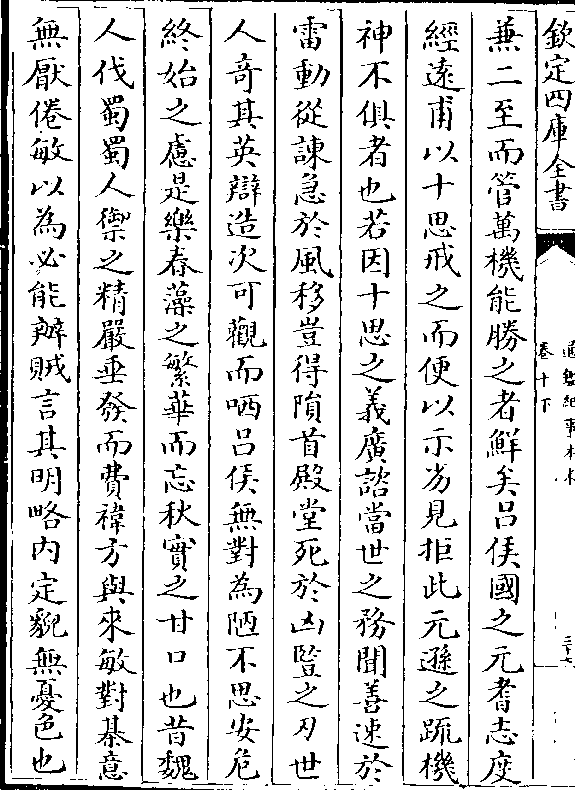 欽定四庫全書
通鑑紀事本末
卷十下
二十七
兼二至而管萬機能勝之者鮮矣吕侯國之元耆志度
經逺甫以十思戒之而便以示劣見拒此元遜之疏機
神不俱者也若因十思之義廣諮當世之務聞善速於
雷動從諫急於風移豈得隕首殿堂死於凶豎之刃世
人竒其英辯造次可觀而哂吕侯無對為陋不思安危
終始之慮是樂春藻之繁華而忘秋實之甘口也昔魏
人伐蜀蜀人禦之精嚴垂發而費禕方與來敏對棊意
無厭倦敏以為必能辦賊言其明略内定貌無憂色也